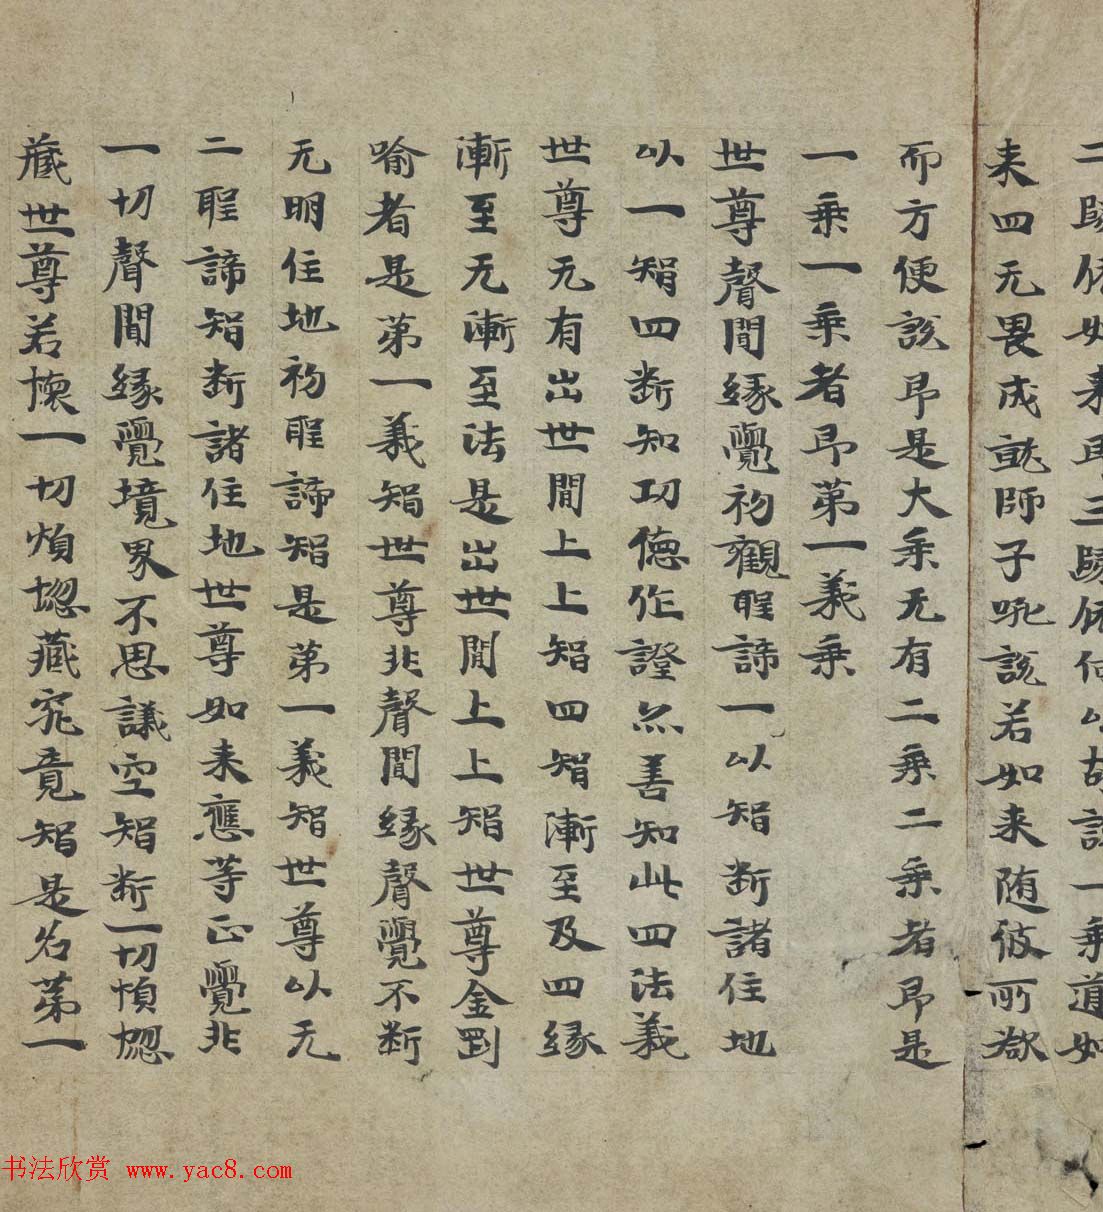 二歸依如来即三歸依何以故說一乗道如
来四无畏成就師子吼說若如来随彼所欲
而方便說即是大乗无有二乗二乗者即是
一乗一乗者即第一義乗
世尊聲聞緣覺初觀聖諦一以智斷諸住地
以一智四斷知功德作證亦善知此四法義
世尊无有出世間上上智四智漸至及四緣
漸至无漸至法是出世間上上智世尊金剛
喻者是第一義智世尊非聲聞緣聲覺不斷
无明住地初聖諦智是第一義智世尊以无
二聖諦智斷諸住地世尊如来應等正覺非
一切聲聞緣覺境界不思議空智斷一切煩惱
藏世尊若懷一切煩惱藏究竟智是名第一
书法欣赏 www.yac8.com